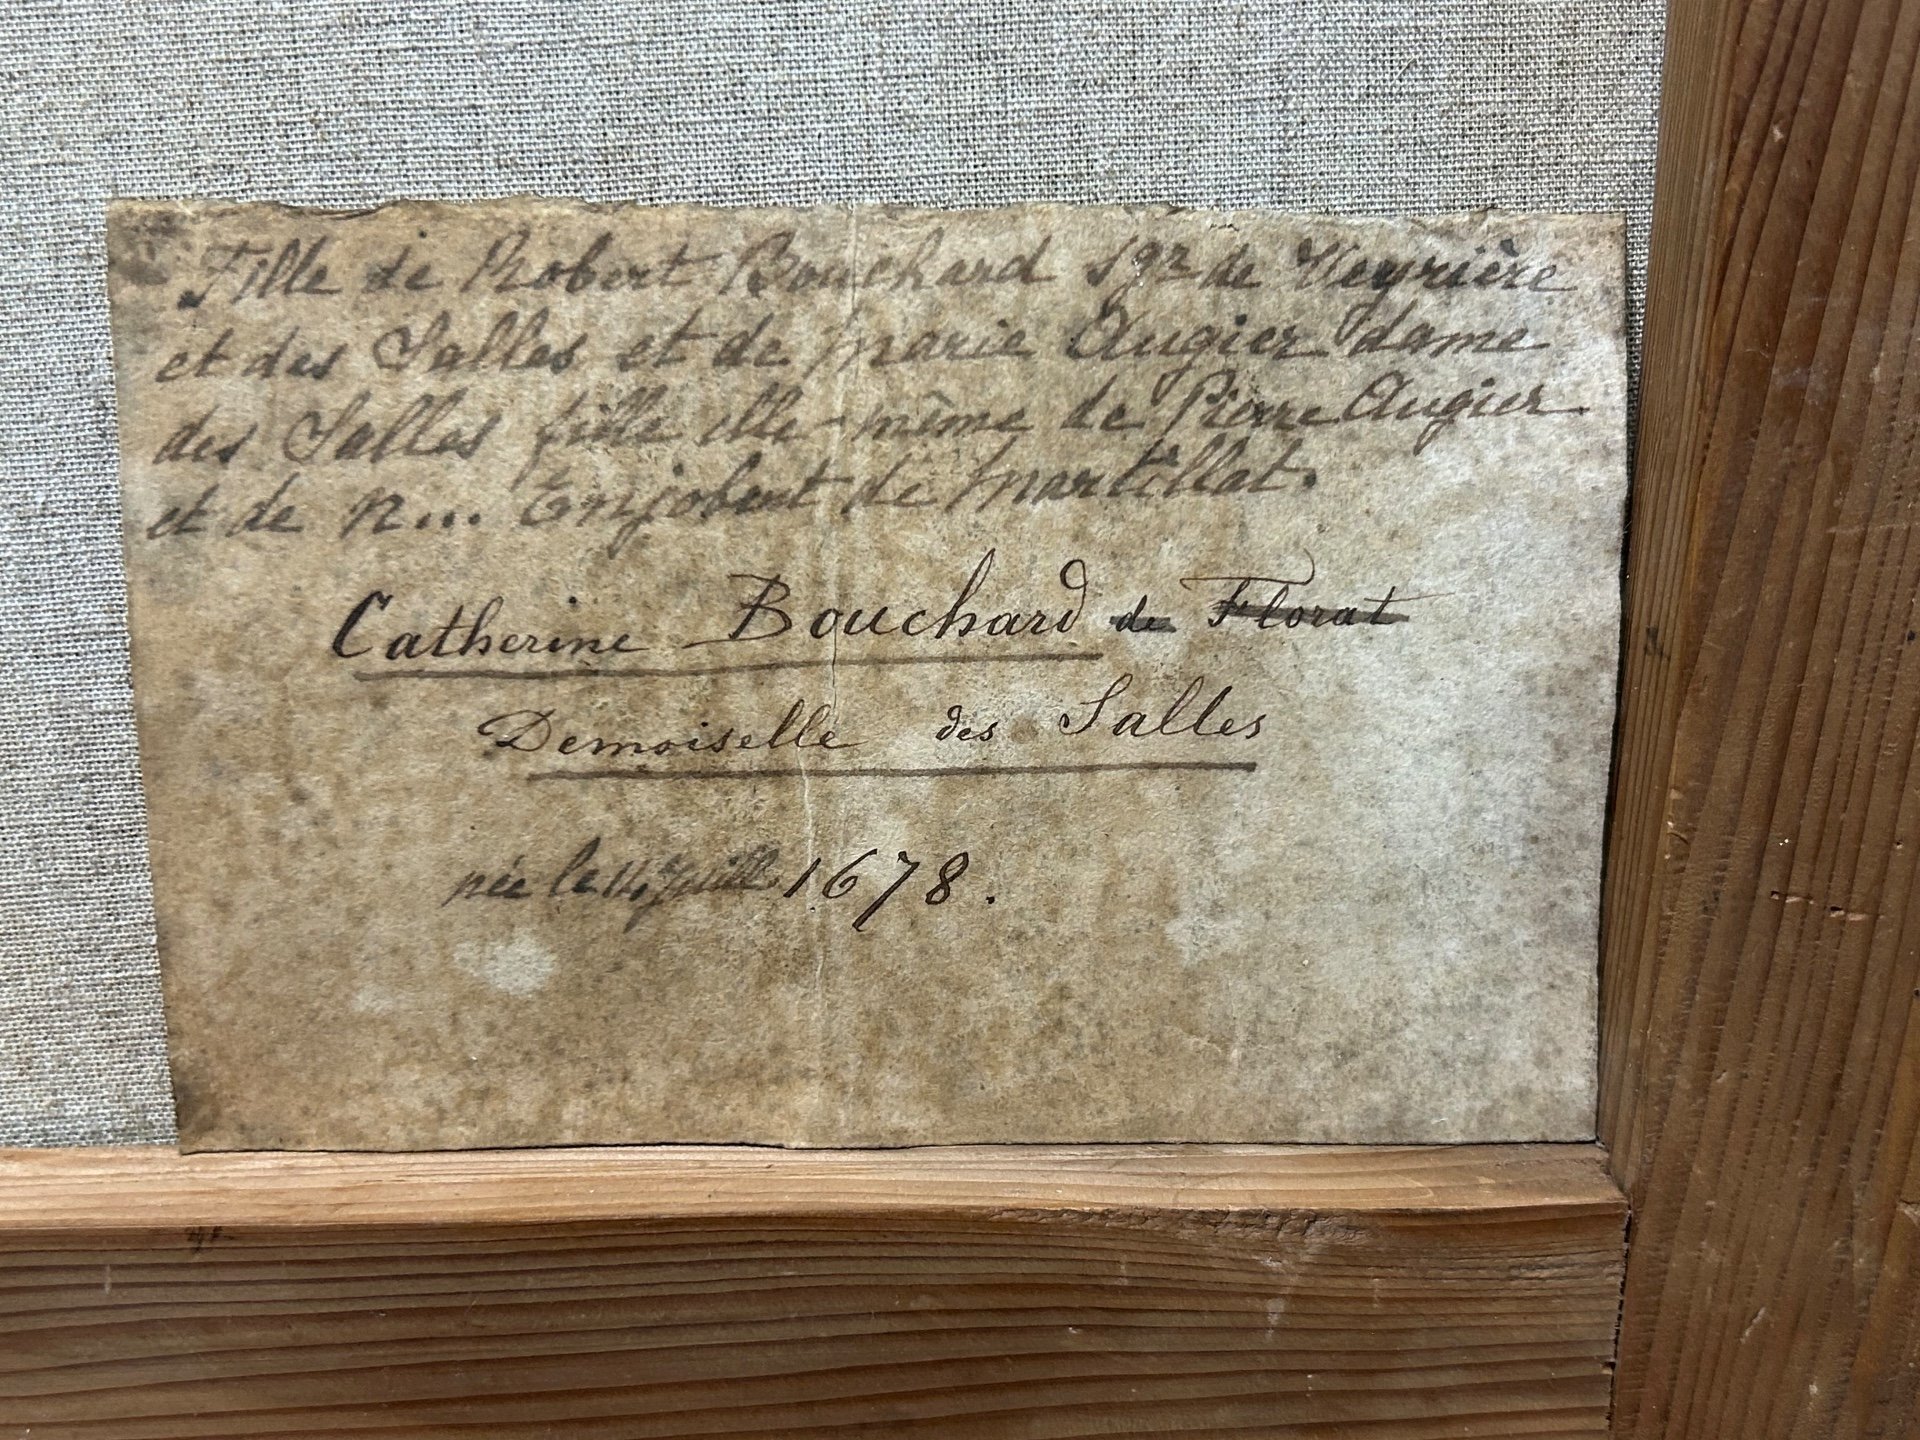 Fille de Robert Bouchard Sgr de Veyrière
et des Salles et de Marie Augier dame
des Salles fille elle-même de Pierre Augier
et de N... Enjobert de Martillat.
Catherine Bouchard de Florat
Demoiselle des Salles
née le 14 Juill. 1678.